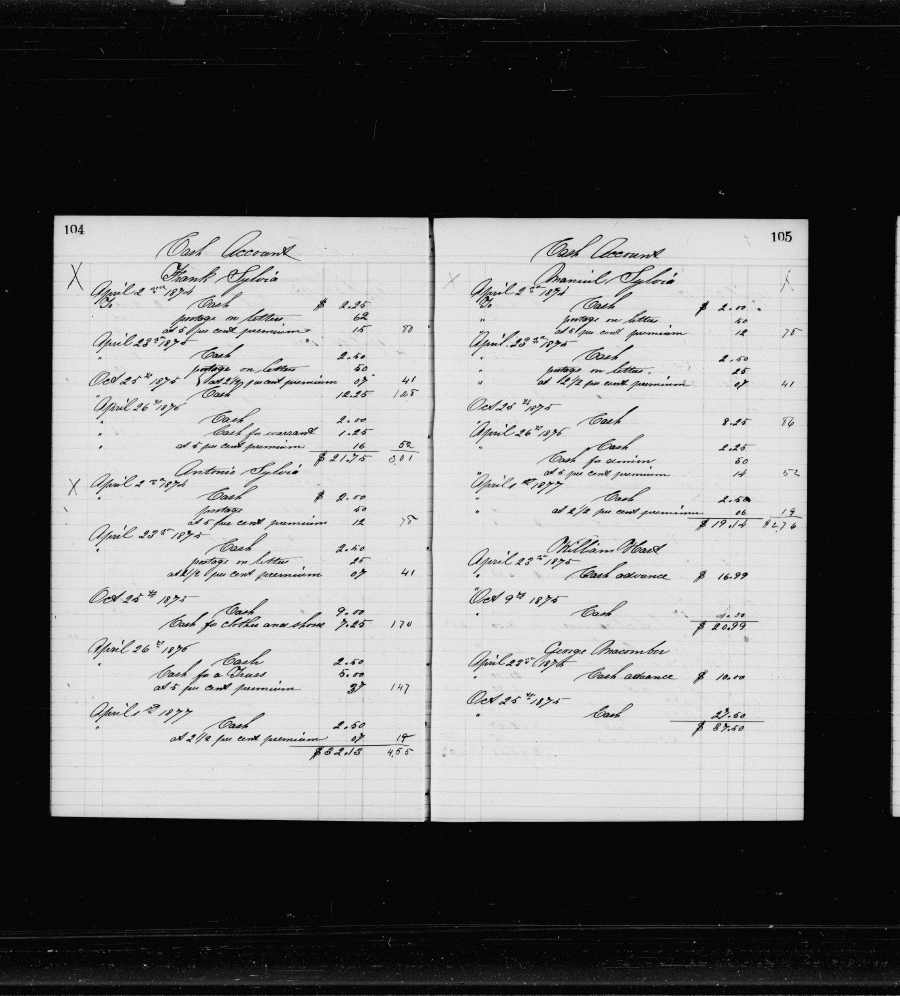 104
Cash Account
X Frank Sylvia
April 2nd 1874
To Cash $ 2.25
" postage on letters 62
" at 5 per cent premium 15 80
April 23rd 1875
" Cash 2.50
" postage on letters 50
Oct 25th 1875 at 2 1/2 per cent premium 07 41
" Cash 12.25 128
April 26th 1876
" Cash 2.00
" Cash for warrant 1.25
" at 5 per cent premium 16 52
$ 21.75 3,01
Antonio Sylvia
X April 2nd 1874
" Cash $ 2.00
postage 50
at 5 per cent premium 12 78
April 23rd 1875
" Cash 2.50
postage on letters 25
at 2 1/2 per cent premium 07 41
Oct 25th 1875
Cash 9.00
Cash for clothes and shoes 7.25 170
April 26th 1876
" Cash 2.50
Cash for a Truss 5.00
at 5 per cent premium 37 147
April 1877
" Cash 2.50
at 2 1/2 per cent premium 07 19
$ 32.13 4,55
105
Cash Account
X Manuel Sylvia
April 2nd 1874
To Cash $ 2.00
" postage on letters 50
" at 5 per cent premium 12 78
April 23rd 1875
" Cash 2.50
" postage on letters 25
" at 2 1/2 per cent premium 07 41
Oct 25th 1875
" Cash 8.25 86
April 26th 1876
" Cash 2.25
Cash for 50
" at 5 per cent premium 14 52
April 1877
" Cash 2.50
" at 2 1/2 per cent premium 06 19
$ 19.14 $2,76
William Hart
April 23rd 1875
" Cash advance $ 16.99
Oct 9th 1875
" Cash 4.00
$ 20.99
George Macomber
April 23rd 1875
" Cash advance $ 10.00
Oct 25th 1875
" Cash 27.50
$ 37.50